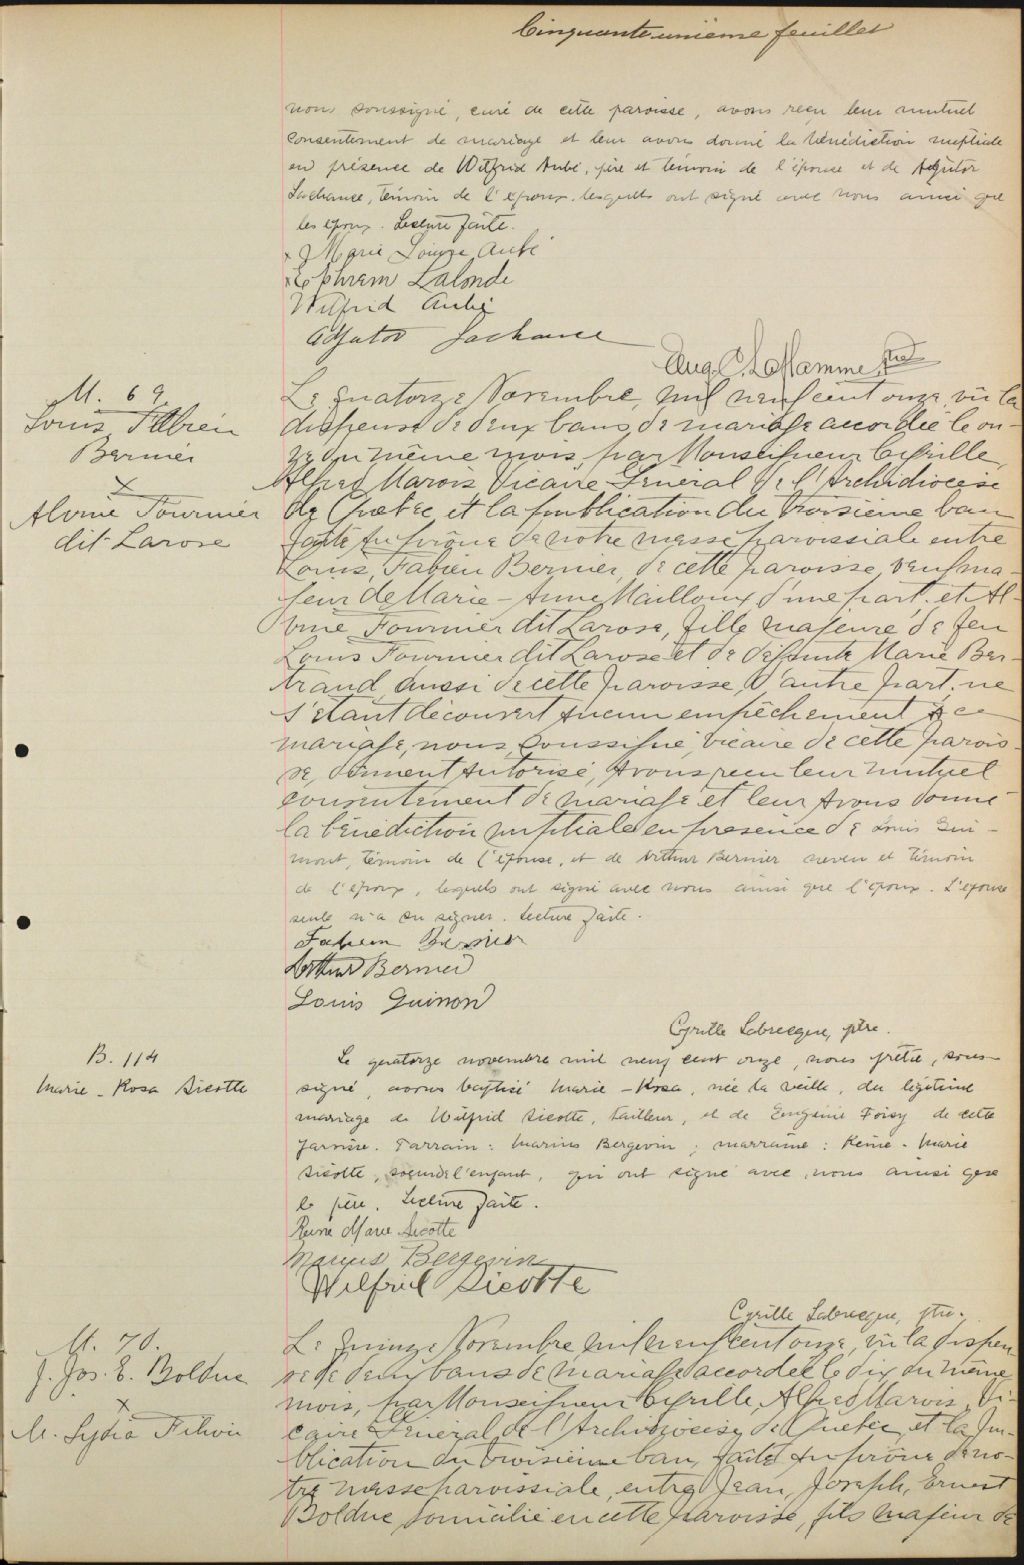 Cinquante-unième feuillet
nous soussigné, curé de cette paroisse, avons reçu leur mutuel
consentement de mariage et leur avons donné la bénédiction nuptiale
en présence de Wilfrid Aubé, père et témoin de l'épouse et de Adjutor
Lachance, témoin de l'époux. lesquels ont signé avec nous ainsi que
les époux. Lecture faite.
x Marie Louise Aubé
x Ephrem Lalonde
Wilfrid Aubé
Adjutor Lachance
Aug. C. Laflamme, ptre
M. 69
Louis Fabien
Bernier
x
Alvine Fournier
dit Larose
Le quatorze Novembre, mil neuf cent onze, vû la
dispense de deux bans de mariage accordée le on-
ze du même mois, par Monseigneur Cyrille
Alfred Marois Vicaire Général de l'Archidiocèse
de Québec et la publication du troisième ban
faite au prône de notre messe paroissiale entre
Louis, Fabien Bernier, de cette paroisse, veuf ma-
jeur de Marie-Anne Mailloux, d'une part, et Al-
vine Fournier dit Larose, fille majeure de feu
Louis Fournier dit Larose et de défunte Marie Ber-
trand, aussi de cette paroisse, d'autre part, ne
s'étant découvert aucun empêchement à ce
mariage, nous, soussigné, vicaire de cette parois-
se, dûment autorisé, avons reçu leur mutuel
consentement de mariage et leur avons donné
la bénédiction nuptiale en présence de Louis Gui-
mont, témoin de l'épouse, et de Arthur Bernier neveu et témoin
de l'époux, lesquels ont signé avec nous ainsi que l'époux. L'épouse
seule n'a su signer. Lecture faite.
Fabien Bernier
Arthur Bernier
Louis Guimond
Cyrille Labrecque, ptre.
B. 114
Marie-Rosa Sicotte
Le quatorze novembre mil neuf cent onze, nous prêtre, sous-
signé, avons baptisé Marie-Rosa, née la veille, du légitime
mariage de Wilfrid Sicotte, tailleur, et de Eugénie Foisy de cette
paroisse. Parrain: Marius Bergevin; marraine: Reine-Marie
Sicotte, soeur de l'enfant, qui ont signé avec nous ainsi que
le père. Lecture faite.
Reine Marie Sicotte
Marius Bergevin
Wilfrid Sicotte
Cyrille Labrecque, ptre.
M. 70.
J. Jos. E. Bolduc
x
M. Lydia
Le Quinze Novembre mil neuf cent onze, vû la dispen-
se de deux bans de mariage accordée le dix du même
mois, par Monseigneur Cyrille, Alfred Marois, Vi-
caire Général de l'Archidiocèse de Québec, et la pu-
blication du troisième ban, faite au prône de no-
tre messe paroissiale, entre Jean, Joseph, Ernest
Bolduc, domicilié en cette paroisse, fils majeur de